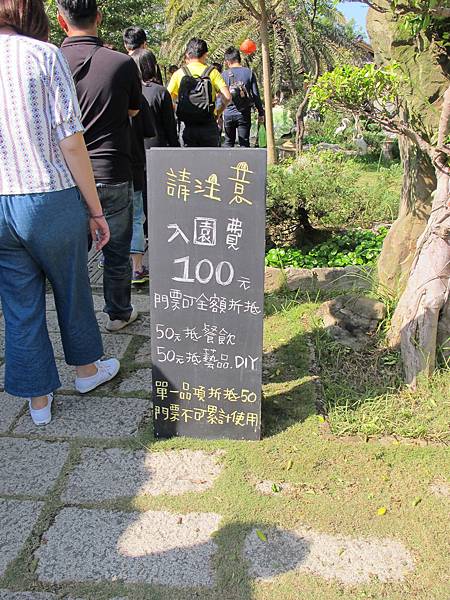 請注意
入園費
100元
門票可全額折抵
50元抵餐飲
50元抵藝品.DIY
單一品項折抵50
門票不可累計使用